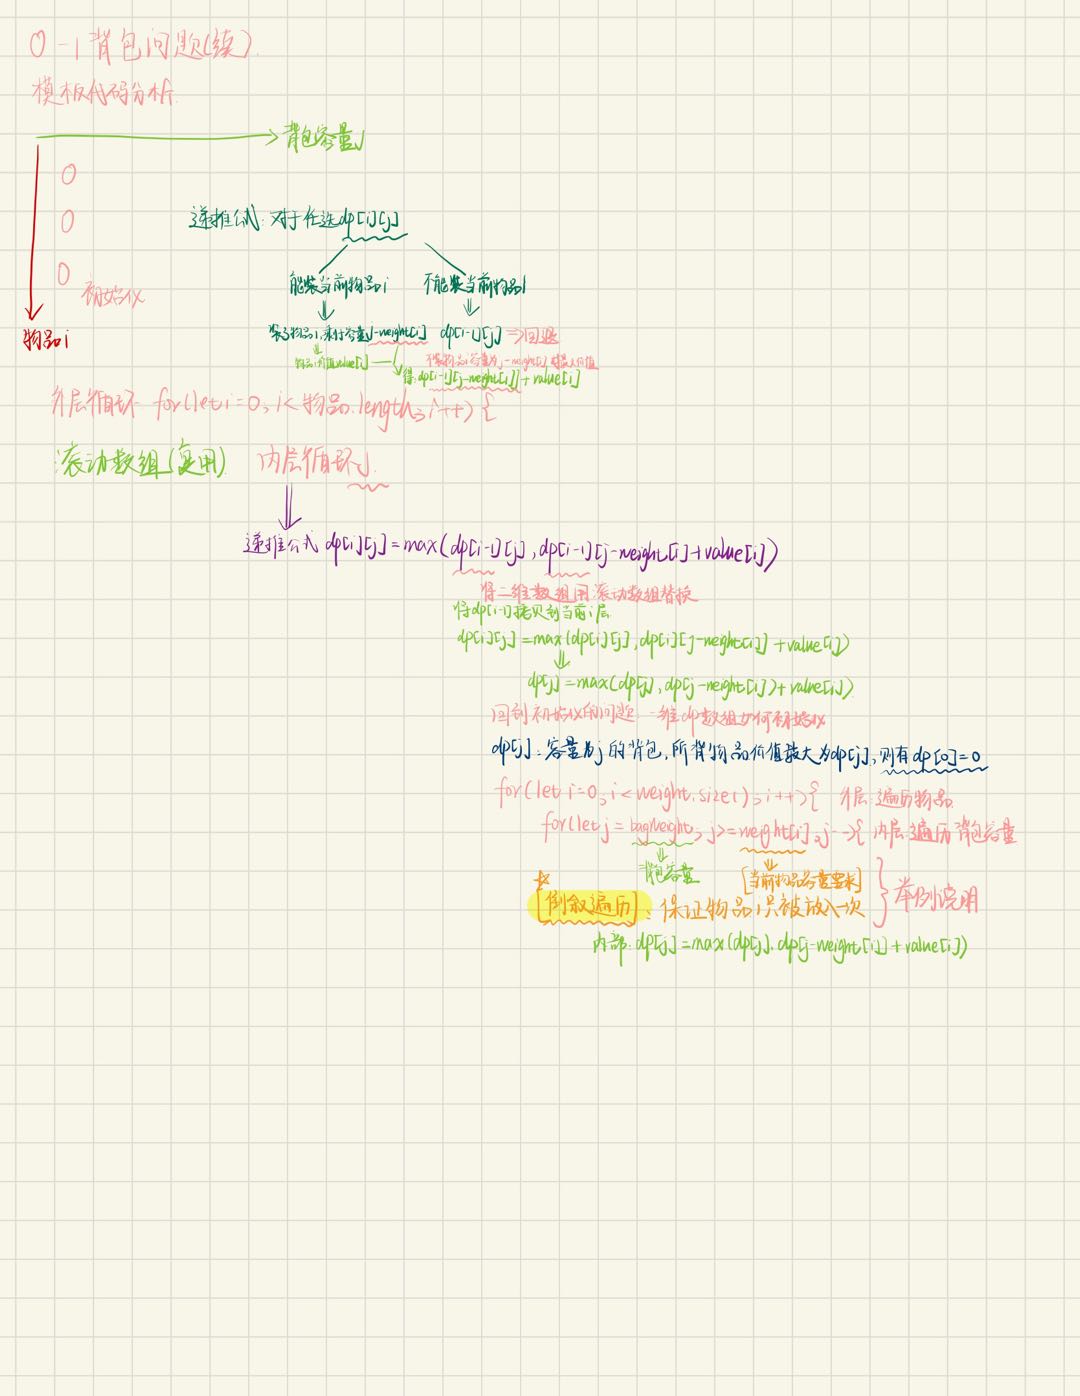 0-1背包问题(续).
模板代码分析.
背包容量j
0
0
0 初始化
物品i
递推公式: 对于任选dp[i][j]
能装当前物品i 不能装当前物品i
装了物品i,剩余容量j-weight[i] dp[i-1][j] ⇒回退
物品i价值value[i] 不装物品i容量为j-weight[i]的最大价值
得:dp[i-1][j-weight[i]]+value[i]
外层循环 for(let i=0; i<物品.length; i++) {
滚动数组(复用) 内层循环j.
递推公式 dp[i][j]=max(dp[i-1][j], dp[i-1][j-weight[i]+value[i])
将二维数组用滚动数组替换
将dp[i-1]拷贝到当前i层
dp[i][j]=max(dp[i][j], dp[i][j-weight[i]]+value[i])
dp[j]=max(dp[j], dp[j-weight[i])+value[i])
回到初始化的问题: 一维dp数组如何初始化
dp[j]: 容量为j的背包, 所背物品价值最大为dp[j], 则有dp[0]=0
for(let i=0; i<weight.size(); i++){ 外层:遍历物品
for(let j=bagWeight; j>=weight[i]; j--){ 内层:遍历背包容量
背包容量 [当前物品容量要求]
☆[倒叙遍历]: 保证物品i只被放入一次 } 举例说明
内部: dp[j]=max(dp[j], dp[j-weight[i]]+value[i])